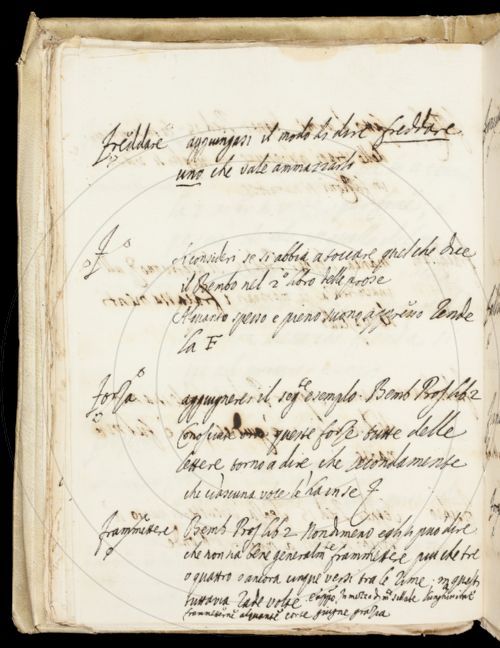 Freddare aggiungasi il modo di dire freddare
uno che vale ammazzarlo
F si consideri se si abbia a toccare quel che dice
il Bembo nel 2.o libro delle prose
Alquanto spesso e pieno suono rende
la F
Forza aggiugnerei il seg.e esempio Bemb Pros. lib 2
Conosciute queste forze tutte delle
lettere torno a dire che secondamente
che ciascuna voce le ha in se
Frammettere Bemb Pros lib 2 Nondimeno egli si può dire
che non sia bene generalm.e frammettere più che tre
o quattro o ancora cinque versi tra le rime; in questi
tuttavia rade volte
alquante grazia